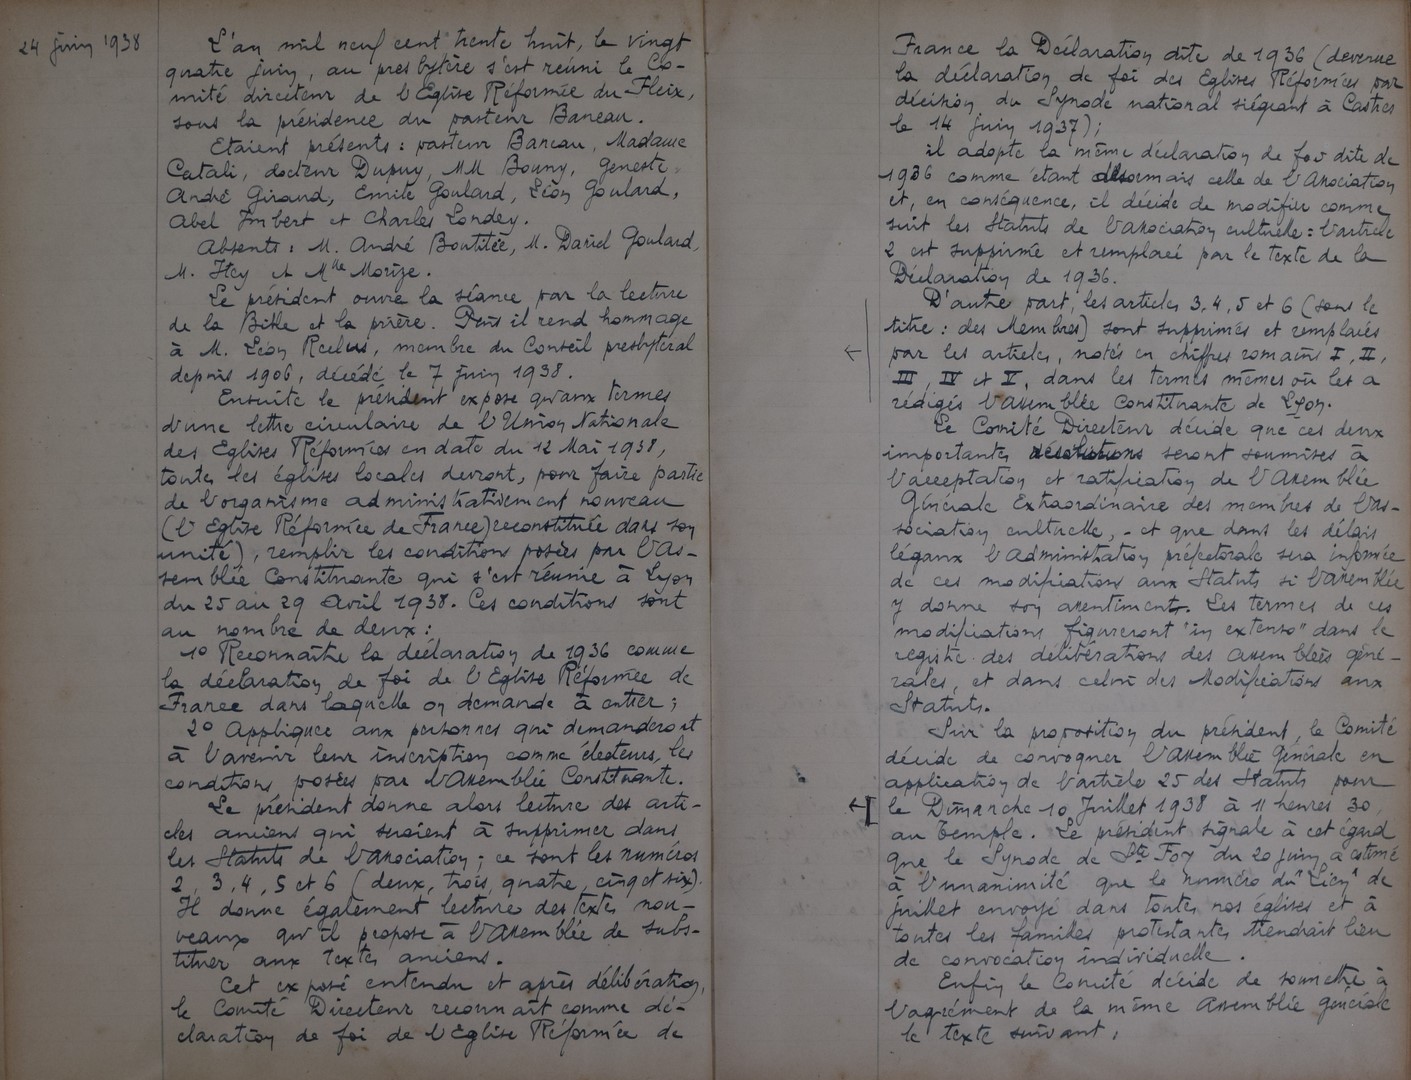 24 juin 1938
L'an mil neuf cent trente huit, le vingt
quatre juin, au presbytère s'est réuni le Co-
mité directeur de l'Eglise Réformée du Fleix,
sous la présidence du pasteur Baneau.
Etaient présents : pasteur Baneau, Madame
Catali, docteur Dupuy, MM Bouny, Geneste,
André Giraud, Emile Goulard, Léon Goulard,
Abel Imbert et Charles Londey.
Absents : M. André Boutitée, M. Daniel Goulard,
M. Itey et Mlle Morize.
Le président ouvre la séance par la lecture
de la Bible et la prière. Puis il rend hommage
à M. Léon Reclus, membre du Conseil presbytéral
depuis 1906, décédé le 7 juin 1938.
Ensuite le président expose qu'aux termes
d'une lettre circulaire de l'Union Nationale
des Eglises Réformées en date du 12 Mai 1938,
toutes les églises locales devront, pour faire partie
de l'organisme administrativement nouveau
(l'Eglise Réformée de France) reconstituée dans son
unité), remplir les conditions posées par l'As-
semblée Constituante qui s'est réunie à Lyon
du 25 au 29 Avril 1938. Ces conditions sont
au nombre de deux :
1º Reconnaître la déclaration de 1936 comme
la déclaration de foi de l'Eglise Réformée de
France dans laquelle on demande à entrer ;
2º Appliquer aux personnes qui demanderont
à l'avenir leur inscription comme électeurs, les
conditions posées par l'Assemblée Constituante.
Le président donne alors lecture des arti-
cles anciens qui seraient à supprimer dans
les Statuts de l'association ; ce sont les numéros
2, 3, 4, 5 et 6 (deux, trois, quatre, cinq et six).
Il donne également lecture des textes nou-
veaux qu'il propose à l'Assemblée de subs-
tituer aux textes anciens.
Cet exposé entendu et après délibération,
le Comité Directeur reconnait comme dé-
claration de foi de l'Eglise Réformée de
France la Déclaration dite de 1936 (devenue
la déclaration de foi des Eglises Réformées par
décision du Synode national siégeant à Castres
le 14 juin 1937) ;
il adopte la même déclaration de foi dite de
1936 comme étant désormais celle de l'Association
et, en conséquence, il décide de modifier comme
suit les Statuts de l'association cultuelle : l'article
2 est supprimé et remplacé par le texte de la
Déclaration de 1936.
D'autre part, les articles 3, 4, 5 et 6 (sous le
titre : des Membres) sont supprimés et remplacés
par les articles, notés en chiffres romains I, II,
III, IV et V, dans les termes mêmes où les a
rédigés l'Assemblée Constituante de Lyon.
Le Comité Directeur décide que ces deux
importantes résolutions seront soumises à
l'acceptation et ratification de l'Assemblée
Générale Extraordinaire des membres de l'as-
sociation cultuelle, - et que dans les délais
légaux l'administration préfectorale sera informée
de ces modifications aux Statuts si l'Assemblée
y donne son assentiment. Les termes de ces
modifications figureront "in extenso" dans le
registre des délibérations des assemblées géné-
rales, et dans celui des Modifications aux
Statuts.
Sur la proposition du président, le Comité
décide de convoquer l'Assemblée Générale en
application de l'article 25 des Statuts pour
le Dimanche 10 Juillet 1938 à 11 heures 30,
au Temple. Le président signale à cet égard
que le Synode de Ste Foy du 20 juin a estimé
à l'unanimité que le numéro du "Lien" de
juillet envoyé dans toutes nos églises et à
toutes les familles protestantes tiendrait lieu
de convocation individuelle.
Enfin le Comité décide de soumettre à
l'agrément de la même Assemblée générale
le texte suivant,